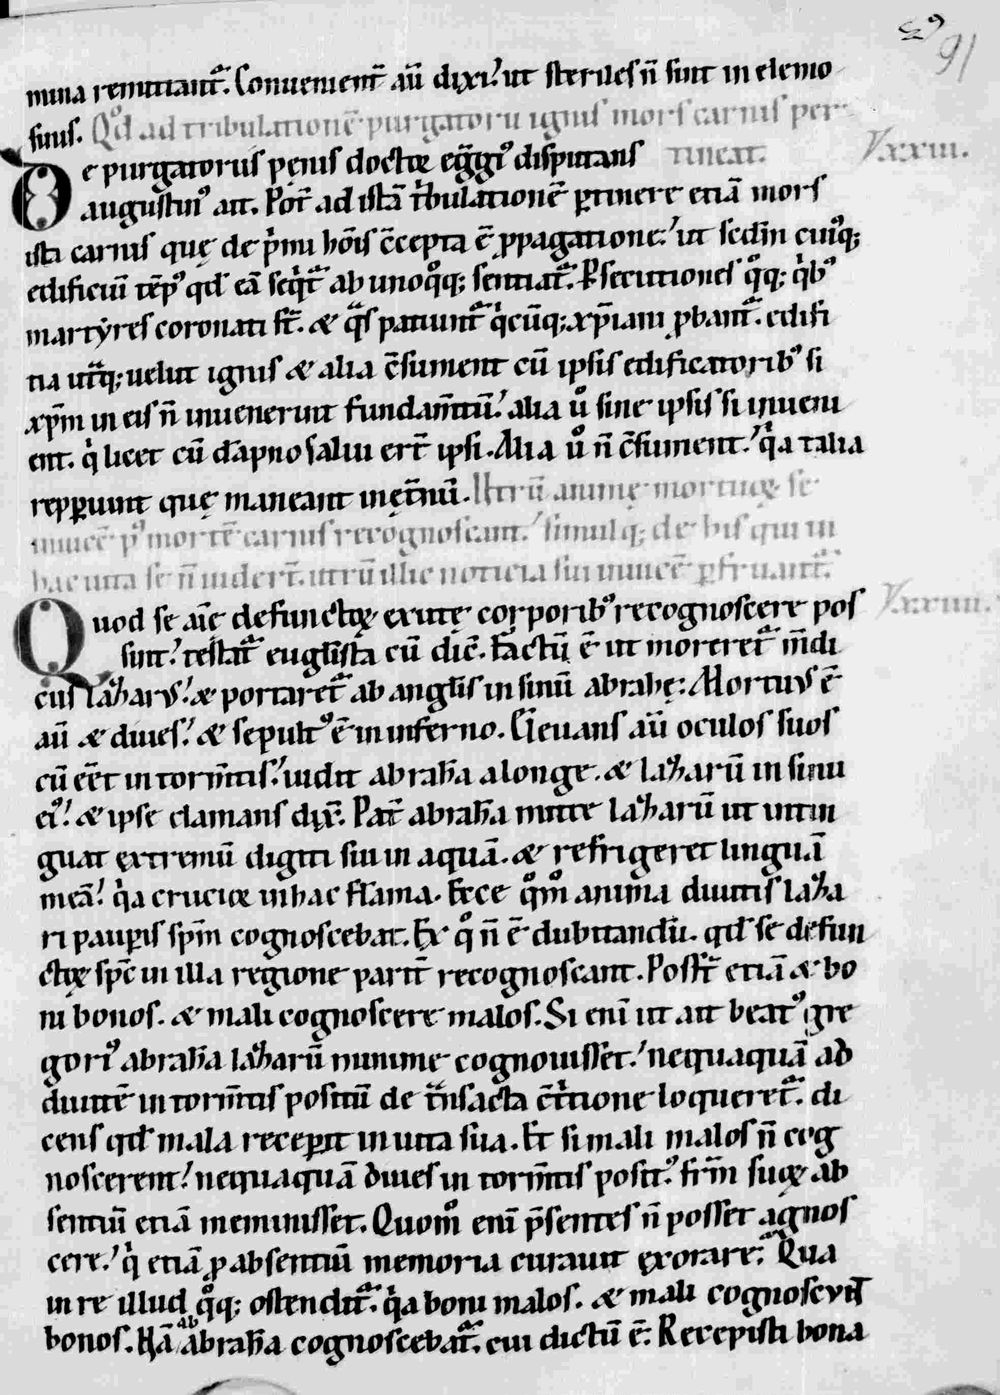 91
mina remittant᷑. Conuenient̄ aū dixi.' ut steriles n̄ sint in elemo
sinis. Qđ ad tribulationē purgatorii ignis mors carnis per
De purgatoriis pęnis doctor egḡiꝰ disputans tineat. XXXIII.
augustinꝰ ait. Pot̄ ad istā t̄bulationē ꝑtinere etiā mors
ista carnis quę de p̄mi hōis c̄cepta ē ꝓpagatione.' ut scđm cuiꝰq;
edificiū tēpꝰ qđ eā seq̄t᷑ ab unoq̊q; sentiat᷑. Ꝑsecutiones q̊q; q̄bꝰ
martyres coronati st̄. & q̄s patiunt᷑ q̄cūq; xp̄iani ꝓbant᷑. edifi
tia ut̄q; uelut ignis & alia c̄sument cū ipsis edificatoribꝰ si
xp̄m in eis n̄ inuenerint fundam̄tū.' alia ů sine ipsis si inueni
ent. q̄ licet cū dāpno salui ert̄ ipsi. Alia ů n̄ c̄sument.' q̄a talia
repꝑiunt quę maneant inęt̄nū. Utrū animę mortuoꝝ se
inuicē pꝰ mortē carnis recognoscant.' simulq; de his qui in
hac uita se n̄ uidert̄. utrū illic noticia sui inuicē ꝑfruant᷑.
Quod se aīę defunctoꝝ exutę corporibꝰ recognoscere pos XXXIIII.
sint.' testat᷑ eug̅lista cū dic̄. Factū ē ut moreret᷑ m̄di
cus lazarus.' & portaret᷑ ab angl̄is in sinū abrahę. Mortuus ē
aū & diues.' & sepultꝰ ē in inferno. Eleuans aū oculos suos
cū eēt in torm̄tis.' uidit abrahā a longe. & lazarū in sinu
eiꝰ.' & ipse clamans dix̄. Pat̄ abrahā mitte lazarū ut intin
guat extremū digiti sui in aquā. & refrigeret linguā
meā.' q̄a crucior in hac flama. Ecce qm̊ anima diuitis laza
ri pauꝑis sp̄m cognoscebat. Ex q̊ n̄ ē dubitandū. qđ se defun
ctoꝝ sp̄c in illa regione parit̄ recognoscant. Posst̄ etiā & bo
ni bonos. & mali cognoscere malos. Si enī ut ait beatꝰ gre
goriꝰ abrahā lazarū minime cognouisset.' nequaquā ad
diuitē in torm̄tis positū de t̄nsacta c̄t̄tione loqueret᷑. di
cens qđ mala receꝑit in uita sua. Et si mali malos n̄ cog
noscerent.' nequaquā diues in torm̄tis positꝰ fr̄m suoꝝ ab
sentiū etiā meminisset. Quom̊ enī p̄sentes n̄ posset agnos
cere.' q̄ etiā ꝓ absentiū memoria curauit exorare. Qua
in re illud q̊q; ostendit᷑. q̄a boni malos. & mali cognoscunt
bonos. Nā & ab abrahā cognoscebat᷑. cui dictū ē. Recepisti bona